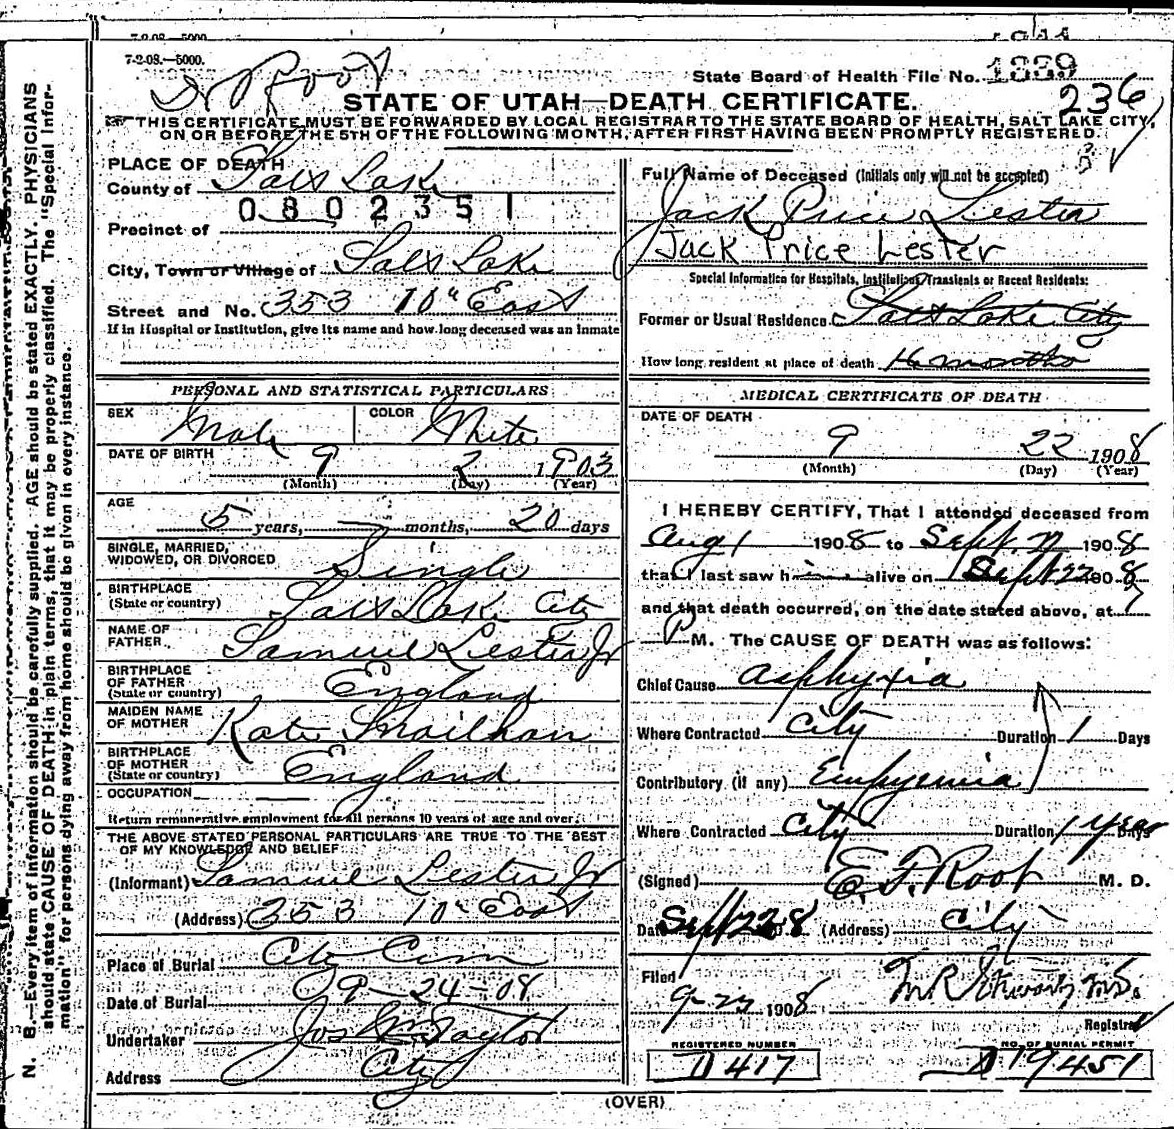 7-2-08.—5000.
7-2-08.—5000.
State Board of Health File No. 1889
236
STATE OF UTAH—DEATH CERTIFICATE.
THIS CERTIFICATE MUST BE FORWARDED BY LOCAL REGISTRAR TO THE STATE BOARD OF HEALTH, SALT LAKE CITY,
ON OR BEFORE THE 5TH OF THE FOLLOWING MONTH, AFTER FIRST HAVING BEEN PROMPTLY REGISTERED.
N. B.—Every item of information should be carefully supplied. AGE should be stated EXACTLY. PHYSICIANS
should state CAUSE OF DEATH in plain terms, that it may be properly classified. The "Special Infor-
mation" for persons dying away from home should be given in every instance.
PLACE OF DEATH
County of Salt Lake
080235 1
Precinct of
City, Town or Village of Salt Lake
Street and No. 353 10" East
If in Hospital or Institution, give its name and how long deceased was an inmate
PERSONAL AND STATISTICAL PARTICULARS
SEX Male COLOR White
DATE OF BIRTH 9 2 1903
(Month) (Day) (Year)
AGE
5 years, — months, 20 days
SINGLE, MARRIED,
WIDOWED, OR DIVORCED Single
BIRTHPLACE
(State or country) Salt Lake City
NAME OF
FATHER Samuel Lester Jr
BIRTHPLACE
OF FATHER
(State or country) England
MAIDEN NAME
OF MOTHER Kate
BIRTHPLACE
OF MOTHER
(State or country) England
OCCUPATION
Return remunerative employment for all persons 10 years of age and over.
THE ABOVE STATED PERSONAL PARTICULARS ARE TRUE TO THE BEST
OF MY KNOWLEDGE AND BELIEF
(Informant) Samuel Lester Jr
(Address) 353 10" East
Place of Burial City Cem
Date of Burial 9-24-08
Undertaker Jos Wm Taylor
Address City
Full Name of Deceased (Initials only will not be accepted)
Jack Price Lester
Jack Price Lester
Special Information for Hospitals, Institutions, Transients or Recent Residents:
Former or Usual Residence Salt Lake City
How long resident at place of death 16 months
MEDICAL CERTIFICATE OF DEATH
DATE OF DEATH
9 22 1908
(Month) (Day) (Year)
I HEREBY CERTIFY, That I attended deceased from
Aug 1 1908 to Sept. 22 1908
that I last saw h alive on Sept 22 1908
and that death occurred, on the date stated above, at 7
P M. The CAUSE OF DEATH was as follows:
Chief Cause Asphyxia
Where Contracted City Duration 1 Days
Contributory (if any) Empyemia
Where Contracted City Duration 1 year Days
(Signed) E. F. Root M. D.
Date Sept 22 08 (Address) City
Filed
9-23 1908
Registrar
REGISTERED NUMBER NO. OF BURIAL PERMIT
D 417 D 19451
(OVER)